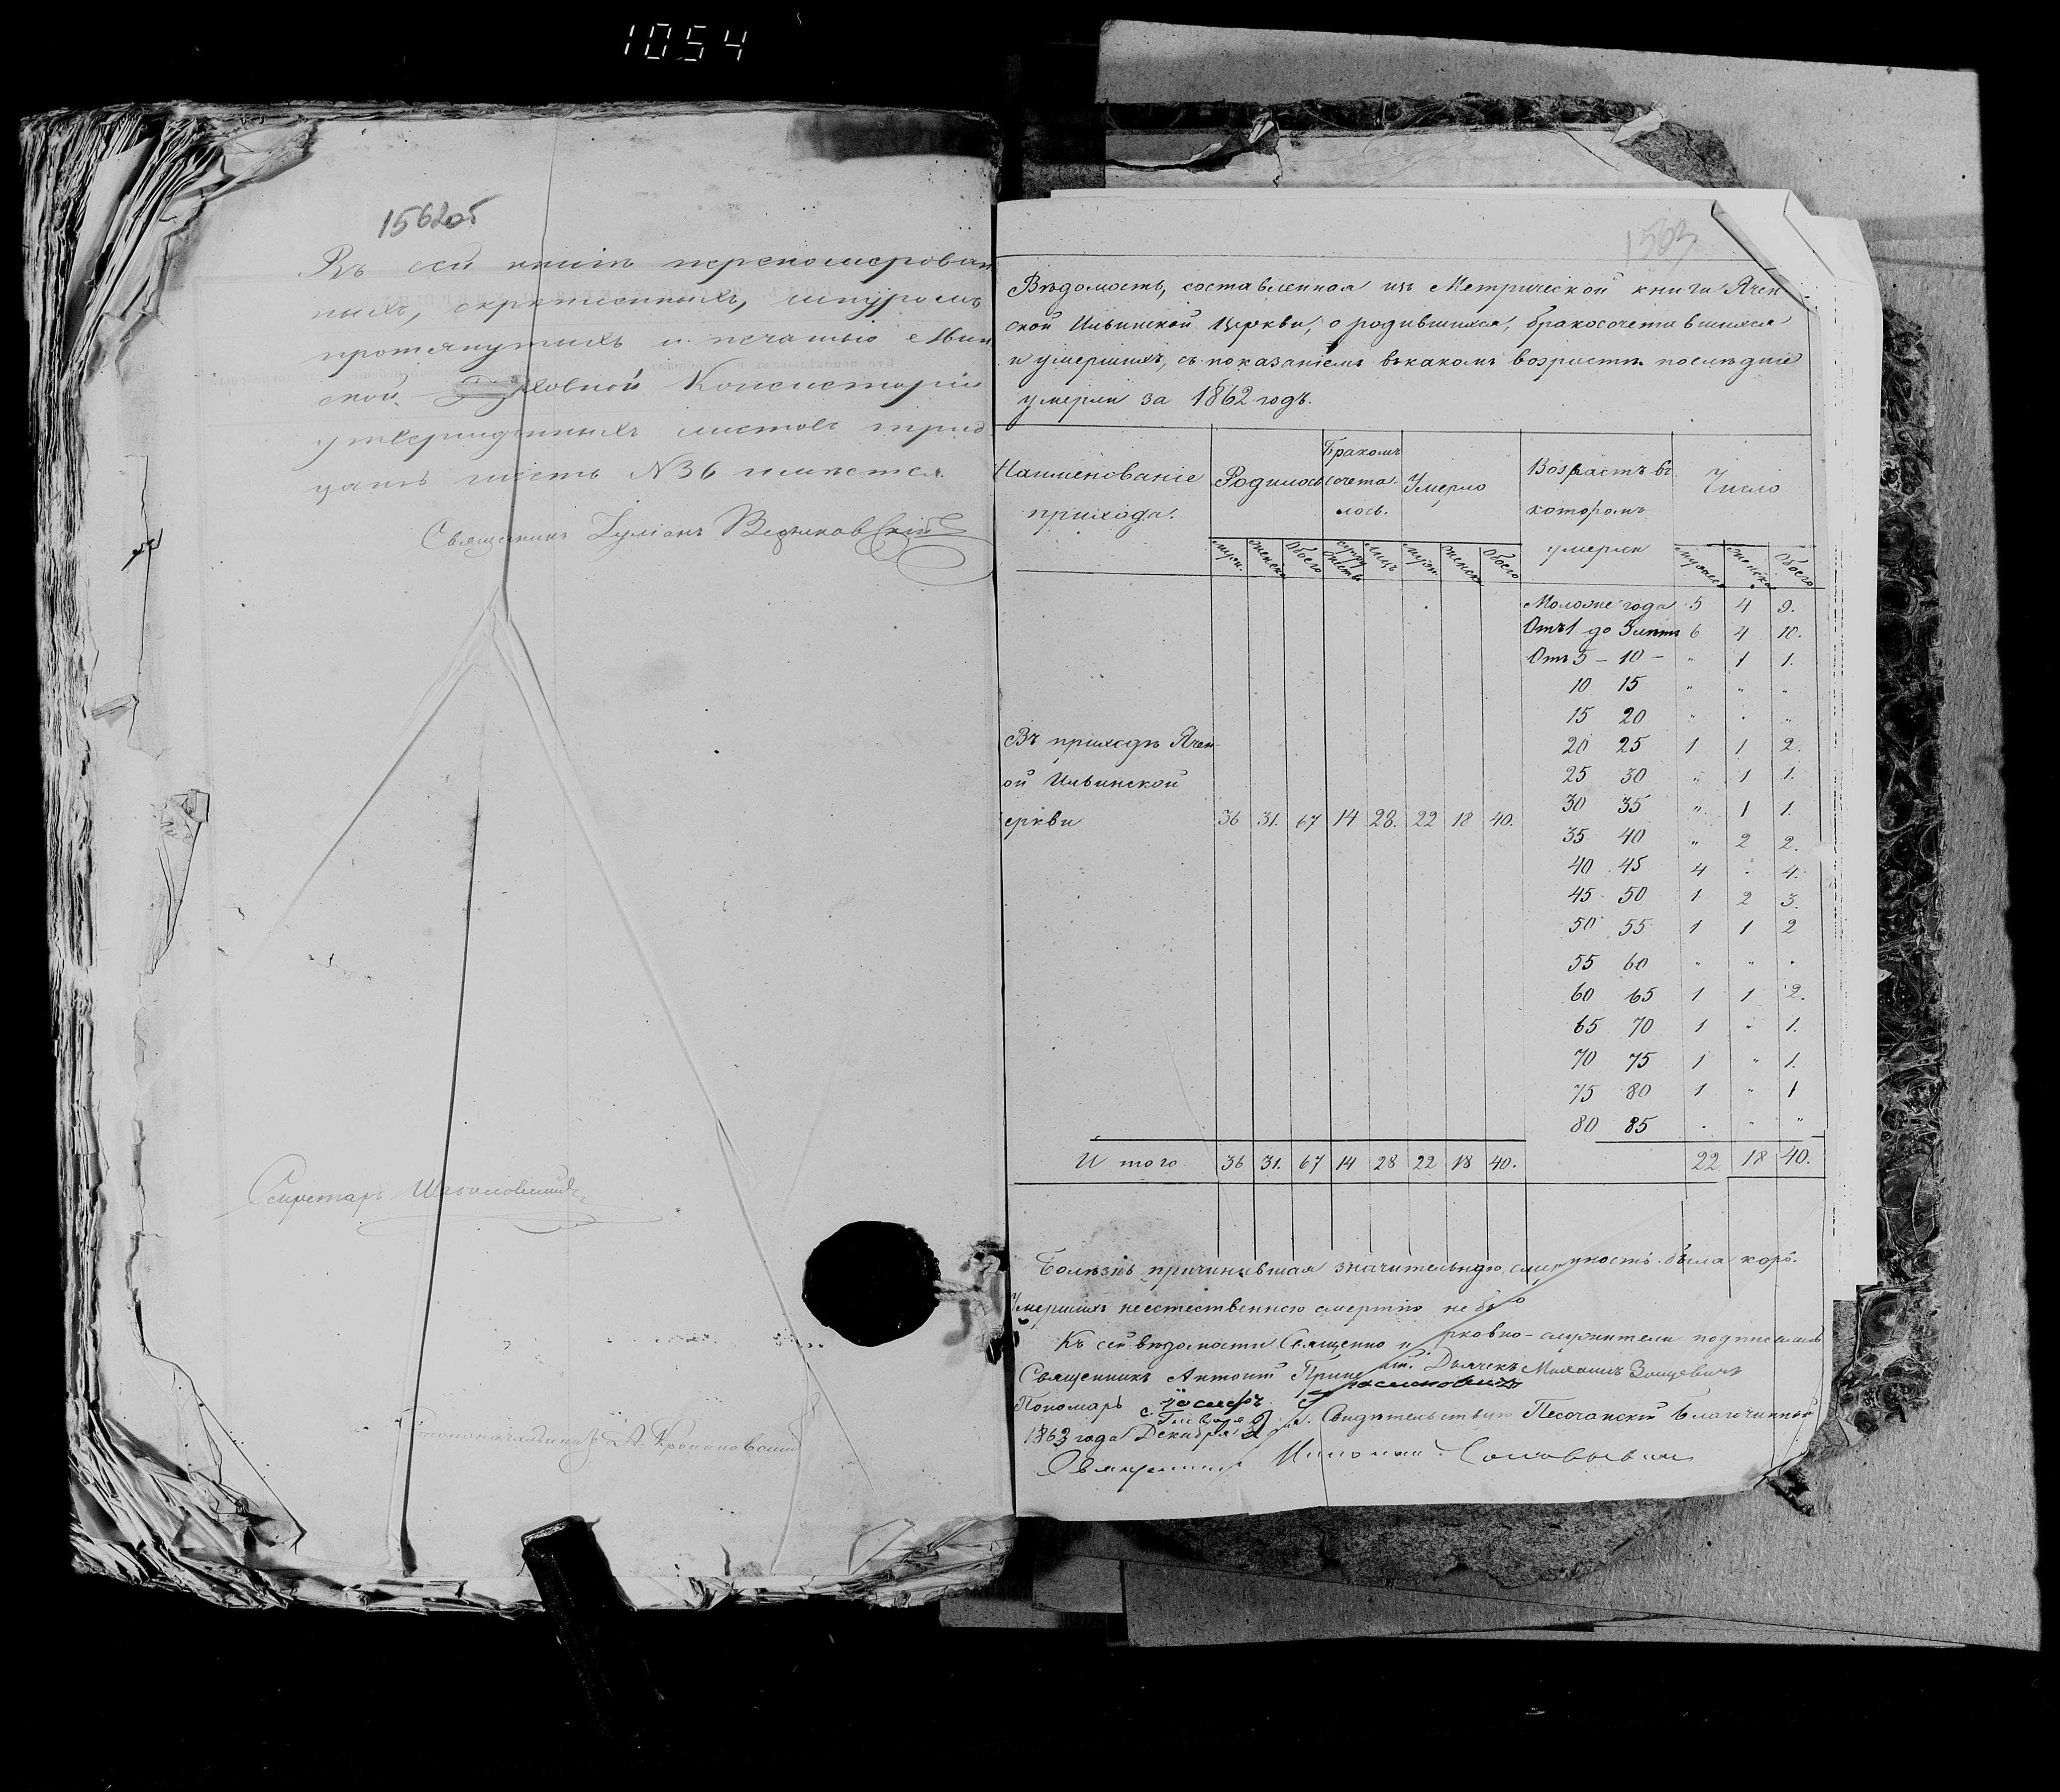 1054
1562об
Въ сей книгѣ перенумерован
ныхъ, скрѣпленныхъ, шнуромъ
протянутыхъ и печатью Мин
ской Духовной Консисторіи
утвержденныхъ листовъ трид
цать шесть N36 имѣется.
Священникъ
Секретарь
Столоначальникъ А.
1563
Вѣдомость, составленная изъ Метрической книги Ячен
ской Ильинской Церкви, о родившихся, бракосочетавшихся
и умершихъ, съ показаніемъ въ какомъ возрастѣ послѣдніе
умерли за 1862 годъ.
Наименованіе прихода. Родилось Бракомъ сочета- лось. Умерло Возрастъ въ которомъ умерли Число
муж. женска Обоего супружествъ лицъ муж. женска Обоего мужеска женска Обоего
Моложе года 5 4 9.
Отъ 1 до 5 лѣтъ 6 4 10.
Отъ 5 - 10 - " 1 1.
10 15 " " "
15 20 " " "
20 25 1 1 2.
25 30 " 1 1.
30 35 " 1 1.
35 40 " 2 2.
40 45 4 " 4.
45 50 1 2 3.
50 55 1 1 2
55 60 " " "
60 65 1 1 2.
65 70 1 " 1.
70 75 1 " 1.
75 80 1 " 1
80 85 " " "
Въ приходѣ Ячен-
ой Ильинской
еркви 36 31. 67 14 28. 22 18 40.
Итого 36 31. 67 14 28 22 18 40. 22 18 40.
Болѣзнь причинившая значительную смертность была корь.
Умершихъ неестественною смертію не было
Къ сей вѣдомости Священно и рковно-служители подписались
Священникъ Антоній Дьячекъ Михаилъ
Пономарь Іосифъ
1863 года Свидѣтельствую Песочанскій Благочинный
Священникъ